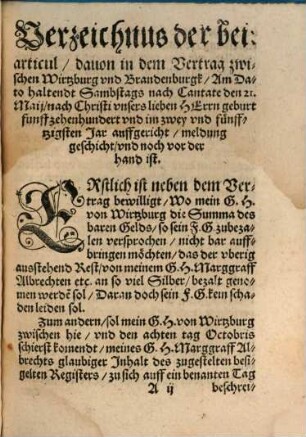 Verzeichnus der bei:
articul / dauon in dem Vertrag zwi-
schen Wirtzburg vnd Brandenburgk / Am Da-
to haltendt Sambstags nach Cantate den 21.
Maij / nach Christi vnsers lieben HErrn geburt
funffzehenhundert vnd im zwey vnd fünff-
tzigsten Jar auffgericht / meldung
geschicht / vnd noch vor der
hand ist.
ERstlich ist neben dem Ver-
trag bewilligt / Wo mein G. H.
von Wirtzburg die Summa des
baren Gelds / so sein F. G zubeza-
len versprochen / nicht bar auff-
bringen möchten / das der vberig
ausstehend Rest / von meinem G. H. Marggraff
Albrechten etc. an so viel Silber / bezalt geno-
men werdē sol / Daran doch sein F. G. kein scha-
den leiden sol.
Zum andern / sol mein G. H. von Wirtzburg
zwischen hie / vnd den achten tag Octobris
schierst komendt / meines G. H. Marggraff Al-
brechts glaubiger Inhalt des zugestelten besi-
gelten Registers / zu sich auff ein benanten Tag
A ij beschrei-